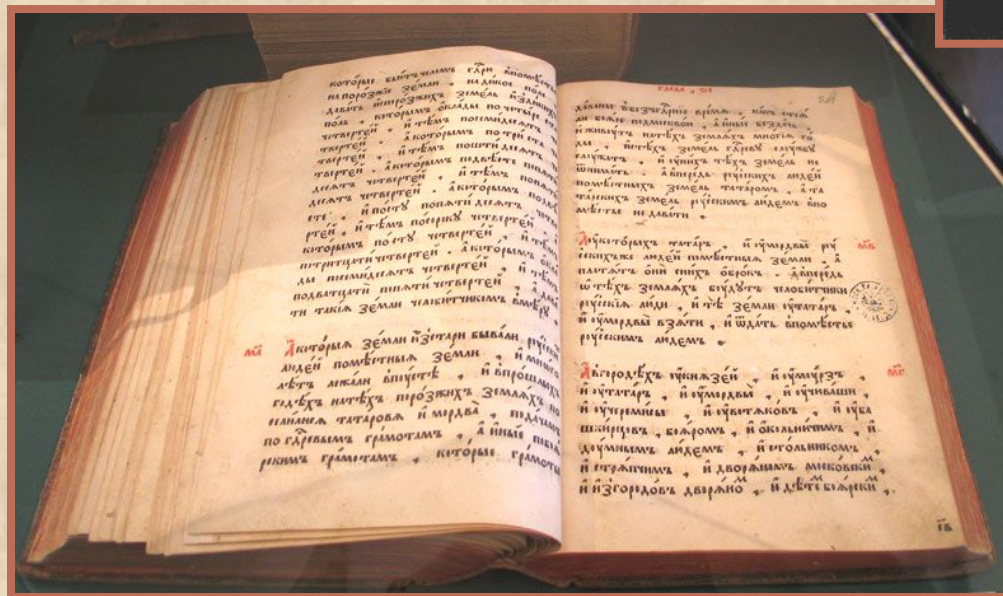 которые бьютъ челомъ гдрю впомѣсть
напорозжие земли . надикое поле
давать испрозжихъ земель издикихъ
поль , которымъ оклады почетыре
четвертей , итѣмъ посемидесятъ че
твертей . акоторымъ потриста че
твертей , итѣмъ пошти десятъ че
твертей . акоторымъ подвѣсте попяти
десятъ четвертей , итѣмъ попяти
десятъ четвертей . акоторымъ подвѣ
сте , ипосту попяти десятъ четве
ртей , итѣмъ посороку четвертей , а
которымъ посту четвертей , итѣмъ
потритцати четвертей . акоторымъ окла
ды посемидесятъ четвертей , итѣмъ
подватцати попяти четвертей , адава
ти такия земли челобитчикомъ вмѣру .
ма҃ Акоторыя земли изстари бывали руских
людей помѣстныя земли , имного
лѣтъ лежали впустѣ , ивпрошлыхъ
годѣхъ натѣхъ порозжихъ земляхъ по
селилися татаровя имордва , подачамъ
погдревымъ грамотамъ , аиные побоя
рскимъ грамотамъ , которые грамоты
глава , ѕ҃і
даваны вбезгдрное время , какъ стоя
ли бояре подмосквою , аиные бездачь ,
иживутъ натѣхъ земляхъ многия го
ды , истѣхъ земель гдреву службу
служатъ , иуних тѣхъ земель не
ѿнимать . авпередь рускихъ людей
помѣстныхъ земель татаромъ , ата
тарскихъ земель рускимъ людемъ впо
мѣстье недавати .
Аукоторыхъ татаръ , иумордвы ру м҃в
скихъже людей помѣстныя земли , а
платятъ они сних оброкъ . авпередь
ѿтѣхъ земляхъ будутъ челобитчики
руския люди , итѣ земли утатаръ ,
иумордвы взяти , иѿдать впомѣстье
рускимъ людемъ .
Авгородѣхъ укнязей , иумурзъ , м҃г
иутатаръ , иумордвы , иучюваши ,
иучеремисы , иувотяковъ , иуба
шкирцовъ , бояромъ , иоколничимъ , и
думнымъ людемъ , истолникомъ ,
истряпчимъ , идворяномъ московски м ,
иизгородовъ дворяно м , идѣте боярски м ,